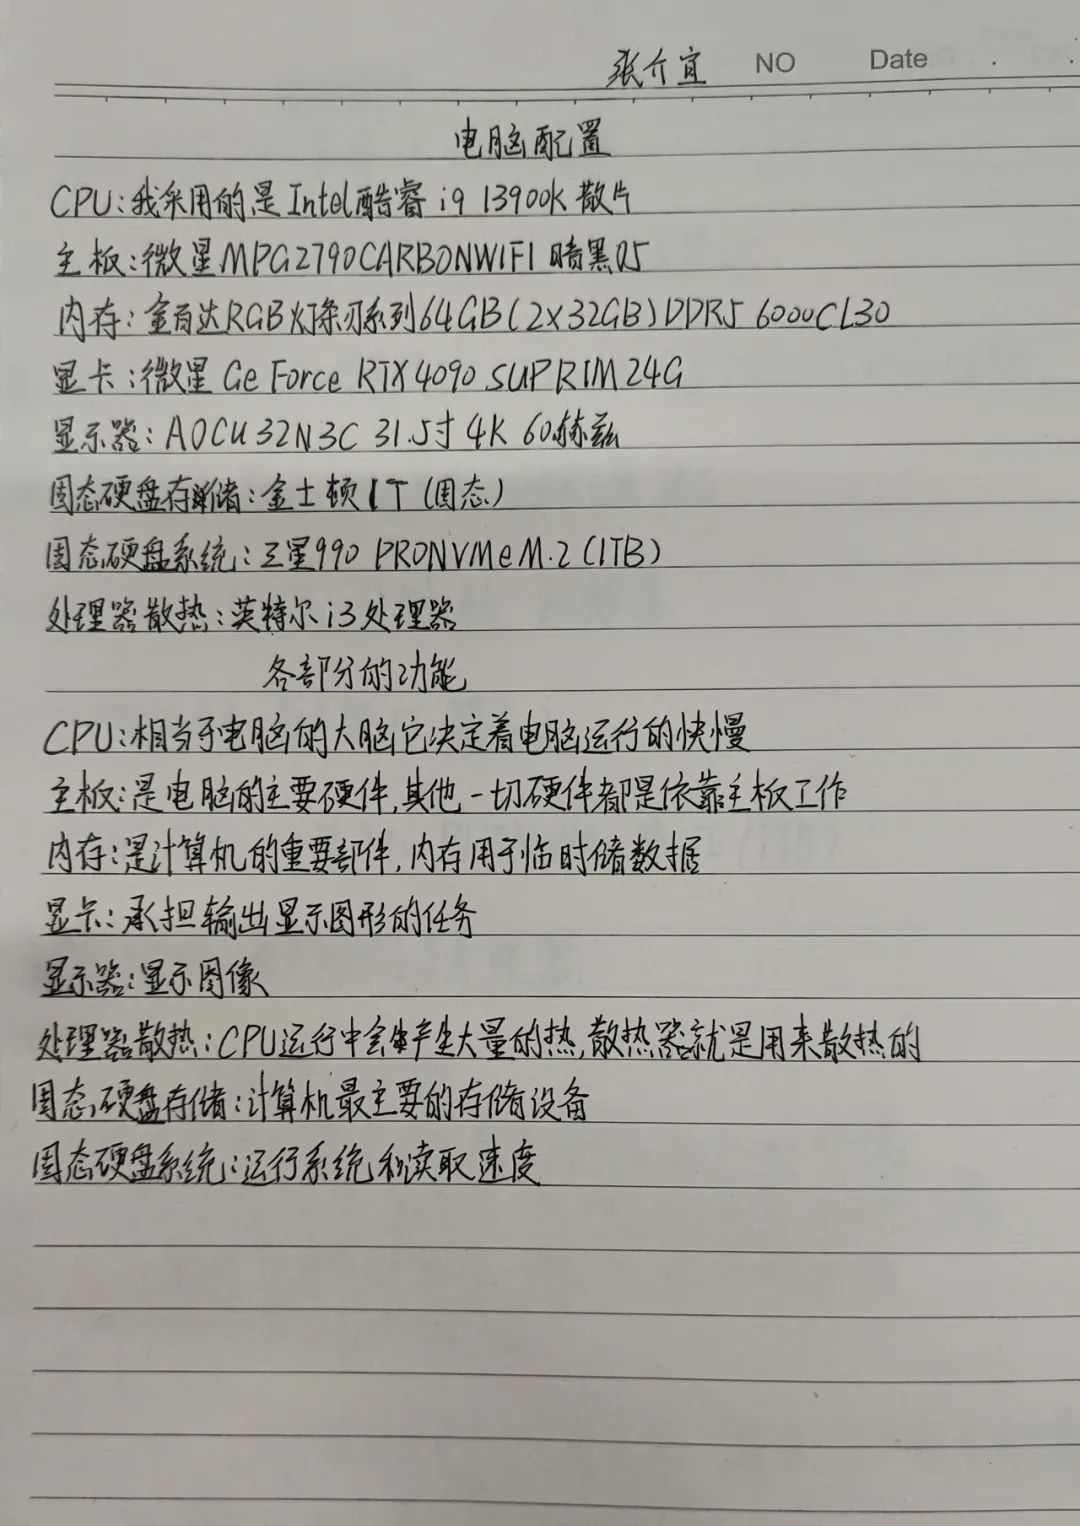 张介宜 NO Date
电脑配置
CPU:我采用的是Intel酷睿i9 13900K散片
主板:微星MPG2790CARBONWIFI暗黑05
内存:金百达RGB灯条刃系列64GB(2X32GB)DDR5 6000CL30
显卡:微星GeForce RTX4090 SUPRIM24G
显示器:AOCU32N3C 31.5寸4K 60赫兹
固态硬盘存储:金士顿1T(固态)
固态硬盘系统:三星990 PRONVMeM.2(1TB)
处理器散热:英特尔i3处理器
各部分的功能
CPU:相当于电脑的大脑它决定着电脑运行的快慢
主板:是电脑的主要硬件,其他一切硬件都是依靠主板工作
内存:是计算机的重要部件,内存用于临时储数据
显卡:承担输出显示图形的任务
显示器:显示图像
处理器散热:CPU运行中会产生大量的热,散热器就是用来散热的
固态硬盘存储:计算机最主要的存储设备
固态硬盘系统:运行系统和读取速度